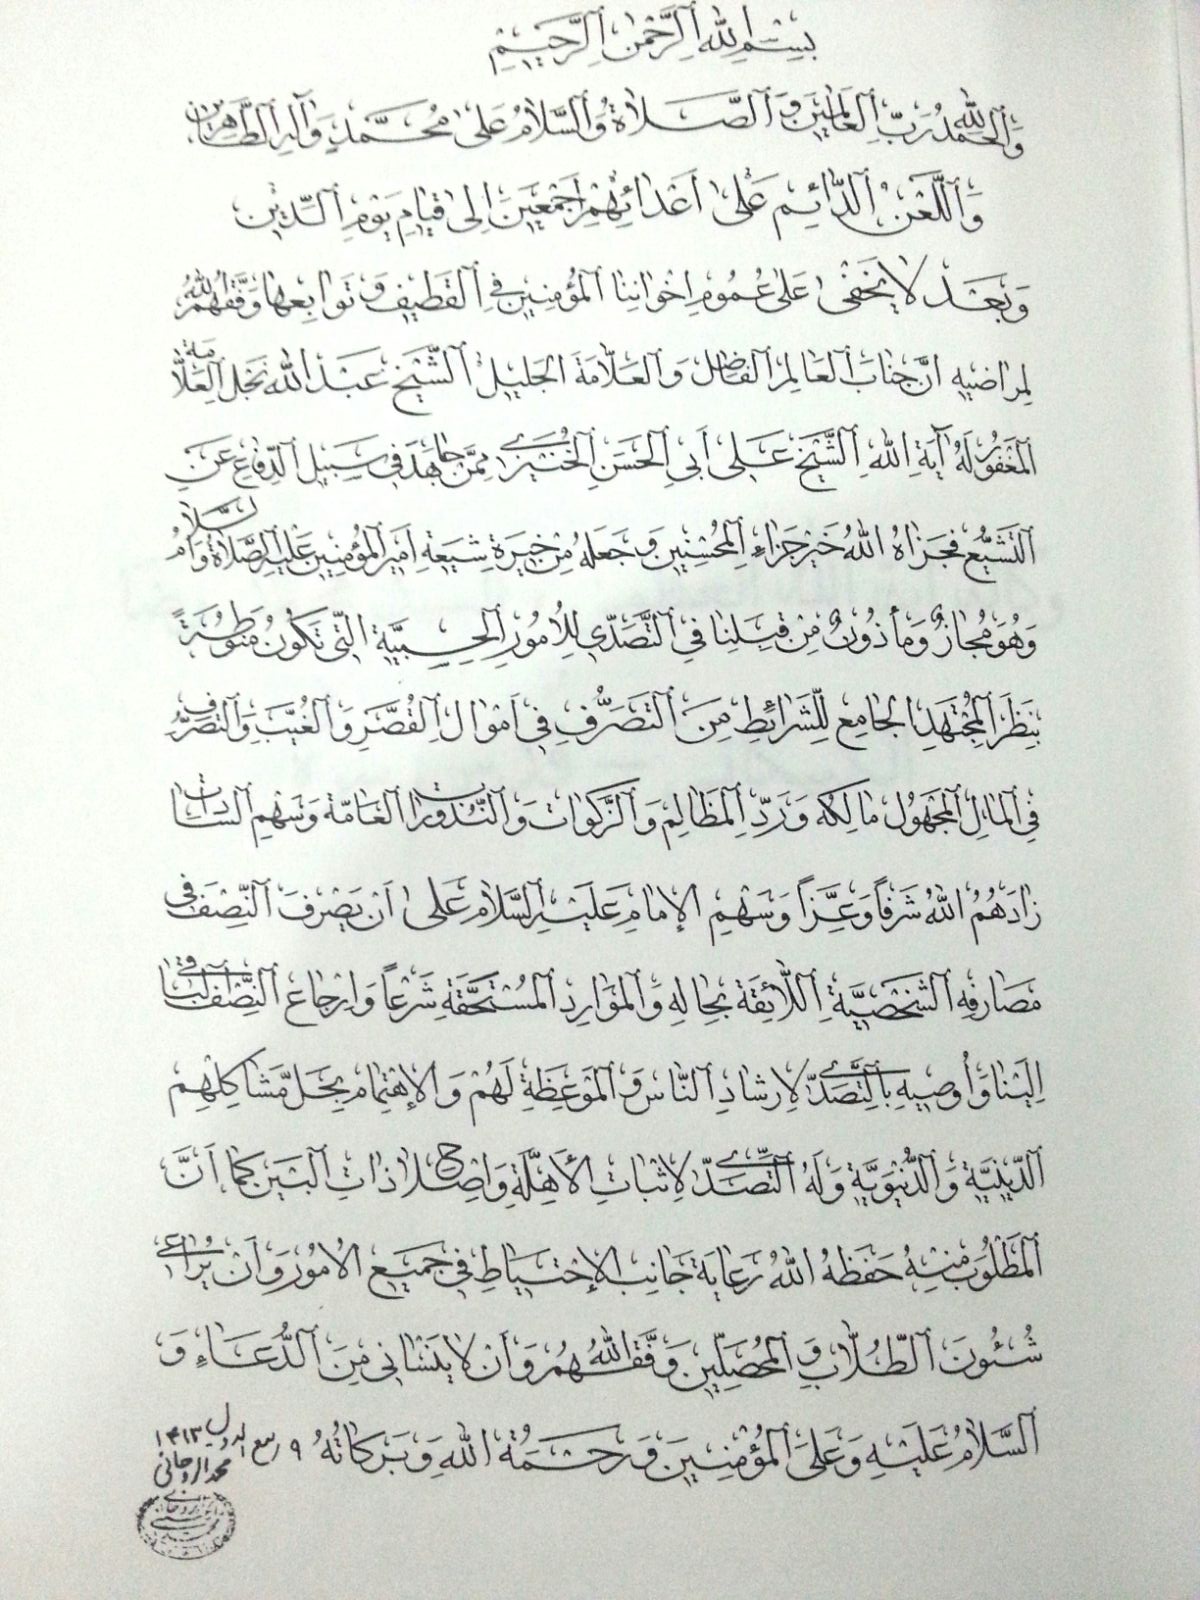 بِسْمِ اللهِ الرَّحْمٰنِ الرَّحِيْمِ
وَالحَمْدُ لِلّٰهِ رَبِّ العَالَمِيْنَ وَ الصَّلَاةُ وَ السَّلَامُ عَلىٰ مُحَمَّدٍ وَآلِهِ الطَّاهِرِيْنَ
وَ اللَّعْنُ الدَّائِمِ عَلىٰ أَعْدَائِهِمْ أَجْمَعِيْنَ إِلىٰ قِيَامِ يَوْمِ الدِّيْنِ
وَبَعْدُ لَا يَخْفىٰ عَلىٰ عُمُومِ اِخْوَانِنَا المُؤْمِنِيْنَ فِي القَطِيْفِ وَ تَوَابِعِهَا وَفَّقَهُمُ اللهُ
لِمَرَاضِيهِ اِنَّ جَنَابَ العَالِمِ الفَاضِلِ وَ العَلَّامَةَ الجَلِيْلِ الشَّيْخِ عَبْدَ اللهِ نَجْلِ العَلَّامَةِ
المَغْفُورُ لَهُ آيَةِ اللهِ الشَّيْخِ عَلى أَبِي الحَسَنِ الخُنَيْزِي مِمَّنْ جَاهَدَ فِي سَبِيْلِ الدِّفَاعِ عَنِ
التَّشَيُّعِ فَجَزَاهُ اللهُ خَيْرَ جَزَاءِ المُحْسِنِيْنَ وَ جَعَلَهُ مِنْ خِيَرَةِ شِيْعَةِ اَمِيْرِ المُؤْمِنِيْنَ عَلَيْهِ الصَّلَاةُ وَ السَّلَامُ
وَهُوَ مُجَازٌ وَ مَأذُونٌ مِنْ قِبَلِنَا فِي التَّصَدِّي لِلأُمُورِ الحِسْبِيَّةِ الَّتِي تَكُونُ مَنُوطَةً
بِنَظَرِ المُجْتَهِدِ الجَامِعِ لِلشَّرَائِطِ مِنَ التَّصَرُّفِ فِي اَمْوَالِ القُصَّرِ وَ الغُيَّبِ وَ التَّصَرُّفِ
فِي المَالِ المَجْهُولِ مَالِكُه وَ رَدِّ المَظَالِمِ وَ الزَّكَوَاتِ وَ النُّذُورَاتِ العَامَّةِ وَسَهْمِ السَّادَاتِ
زَادَهُمُ اللهُ شَرَفاً وَ عِزّاً وَ سَهْمِ الإِمَامِ عَلَيْهِ السَّلَامُ عَلى اَنْ يَصْرِفَ النِّصْفَ فِي
مَصَارِفِهِ الشَّخْصِيَّةِ اللَّائِقَةِ بِحَالِهِ وَ المَوَارِدِ المُسْتَحَقَّةِ شَرْعاً وَ اِرْجَاعِ النِّصْفِ البَاقِي
اِلَيْنَا وَ أُوصِيهِ بِالتَّصَدِّي لِاِرْشَادِ النَّاسِ وَ المَوْعِظَةِ لَهُمْ وَ الاِهْتِمَامِ بِحَلِّ مَشَاكِلِهِمِ
الدِّيْنِيَّةِ وَ الدُّنْيَوِيَّةِ وَ لَهُ التَّصَدِّي لِاِثْبَاتِ الأَهِلَّةِ وَ اِصْلَاحِ ذَاتِ البَيْنِ كَمَا اَنَّ
المَطْلُوبَ مِنْهُ حَفِظَهُ اللهُ رِعَايَةَ جَانِبِ الاِحْتِيَاطِ فِي جَمِيْعِ الأُمُورِ وَ اَنْ يُرَاعِي
شُئُونَ الطُّلَّابِ وَ المُحَصِّلِيْنَ وَفَّقَهُمُ اللهُ وَ أَنْ لَا يَنْسَانِي مِنَ الدُّعَاءِ وَ
السَّلَامُ عَلَيْهِ وَ عَلىَ المُؤْمِنِيْنَ وَ رَحْمَةُ اللهِ وَ بَرَكَاتُهُ ٩ ربيع الاول ١٤١٣
محمد الروحاني